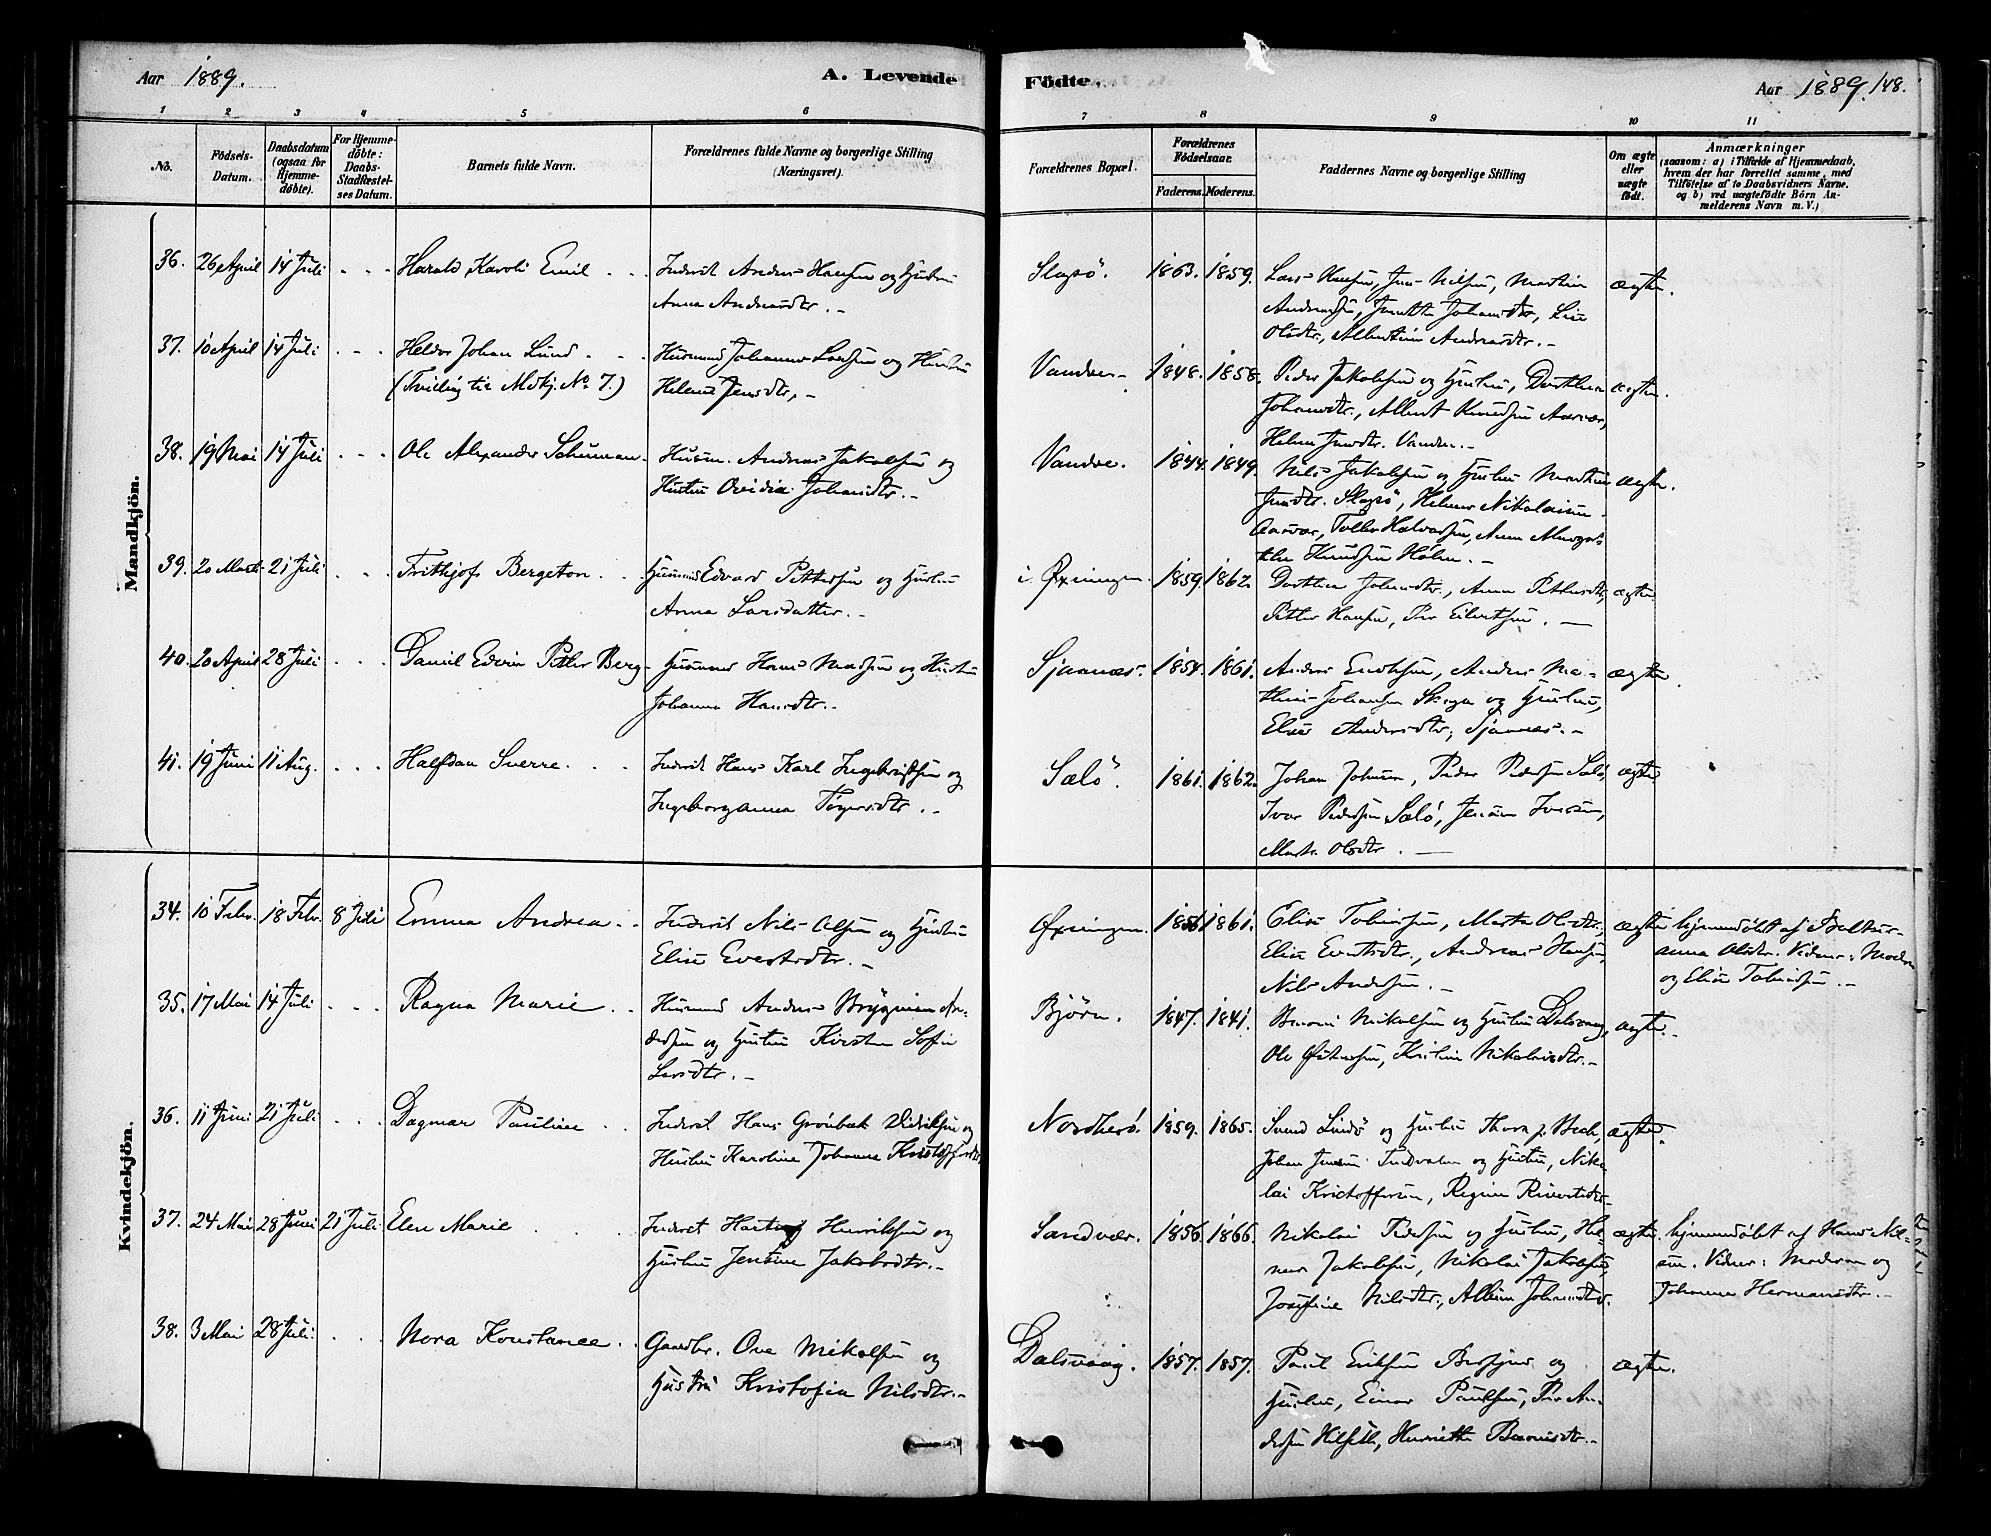 Aar 1889. A. Levende Födte. Aar 1889. 148.
1 2 3 4 5 6 7 8 9 10 11
No. Födsels-Datum. Daabsdatum (ogsaa for Hjemmedöbte). For Hjemmedöbte: Daabs-Stadfæstelses Datum. Barnets fulde Navn. Forældrenes fulde Navne og borgerlige Stilling (Næringsvei). Forældrenes Bopæl. Forældrenes Födselsaar. Faderens. Moderens. Faddernes Navne og borgerlige Stilling Om ægte eller uægte födt. Anmærkninger (saasom: a) i Tilfælde af Hjemmedaab, hvem der har forrettet samme, med Tilföielse af to Daabsvidners Navne. og b) ved uægtefödte Börn Anmelderens Navn m. V.)
Mandkjön.
36. 26 April 14 Juli Harald Karoli Emil Inderst Andreas Hansen og Hustru Slapö. 1863. 1859. Lars Hansen, Jens Nilsen, Martin ægte.
Anna Andreasdtr.
Olsdtr., Albertine Andreasdtr.
37. 10 April 14 Juli Heldor Johan Lund Husmand Johannes Larsen og Hustru Vandve 1848. 1858. Peder Jakobsen og Hustru, Dorthea ægte.
(Tvilling til Mdkj. No 7.) Helene Jensdtr. Johansdtr., Albert Knudsen Aasvær,
Helene Jensdtr. Vandve.
38. 19 Mai 14 Juli Ole Alexander Schuman Husm. Andreas Jakobsen og Vandve. 1844. 1849. Nils Jakobsen og Hustru Martha ægte.
Hustru Ovidia Johansdtr. Jensdtr. Slapö, Helmer Nikolaisen
Aasvær,
39. 20 Marts 21 Juli Frithjof Bergeton Husmand Edvard Pettersen og Hustru i Øxningen. 1859. 1862. Dorthea Johansdtr., Anna Pettersdtr., ægte.
Anna Larsdatter. Petter Hansen, Per Eilertsen.
40. 20 April 28 Juli Daniel Edvin Petter Berg Husmand Hans Madsen og Hustru Sjaanæs. 1854. 1861. Anders Enoksen, Anders Ma- ægte.
Johanna Hansdtr. thias Johansen Skoga og Hustru,
Else Andersdtr., Sjaanæs.
41. 19 Juni 11 Aug. Halfdan Sverre Inderst Hans Karl Ingebrigtsen og Sælö. 1861. 1862. Johan Johnsen, Peder Pedersen Sælö, ægte
Ingeborganna Tögersdtr. Ivar Pedersen Sælö, Jensine Iversen,
Marta Olsdtr.
Kvindekjön.
34. 10 Febr. 18 Febr. 8 Juli Emma Andrea Inderst Nils Olsen og Hustru Øxningen. 1856. 1861. Elias Tobiassen, Marta Olsdtr., ægte hjemmedøbt af Balzer-
Elise Evertsdtr. Elise Evertsdtr., Andreas Hansen, anna Olsdtr. Vidner: Modren
Nils Andersen. og Elias Tobiassen.
35. 17 Mai 14 Juli Ragna Marie Husmand Anders Brygman An- Bjørn. 1847. 1841. Nikolsen og Hustru Dalsvaag, ægte.
dersen og Hustru Kirsten Sofie Ole Østensen, Kristine Nikolaisdtr.
Larsdtr.
36. 11 Juni 21 Juli Dagmar Pauline Inderst Hans Grönbek Didriksen og Nordherö. 1859. 1865. Svend Lindö og Hustru Thora f. Bech, ægte.
Hustru Karoline Johanna Kristoffersdtr. Johan Jensen Tindvalen og Hustru, Niko-
lai Kristoffersen, Regine
37. 24 Mai 28 Juni 21 Juli Elen Marie Inderst Hartvig Henriksen og Sandvær. 1856. 1866. Nikolai Pedersen og Hustru, Hel- ægte. hjemmedøbt af Hans Nil-
Hustru Jensine Jakobsdtr. mer Jakobsen, Nikolai Jakobsen, sen. Vidner: Modren og
Josefine Nilsdtr., Albine Johansdtr. Johanna Hermansdtr.
38. 3 Mai 28 Juli. Nora Konstance Gaardbr. Ove Mikalsen og Dalsvaag. 1857. 1857. Paul Eriksen og ægte.
Hustru Kristofia Nilsdtr. Hustru, Einar Paulsen, Per An-
dersen Hilseth, Henriette